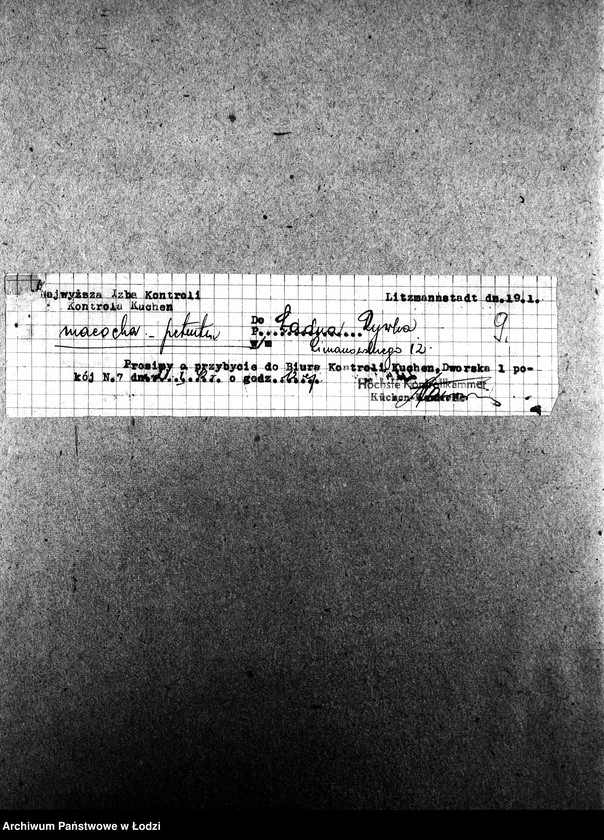 Najwyższa Izba Kontroli
Kontrola Kuchen
Litzmannstadt dn.19.1.
macocha - petentki
Do
P. Ładna Rywka
w/m
Limanowskiego 12.
9.
Prosimy o przybycie do Biura Kontroli Kuchen, Dworska 1 po-
kój N.7 dn. o godz.
Höchste Kontrollkammer
Küchen-Kontrolle
Archiwum Państwowe w Łodzi